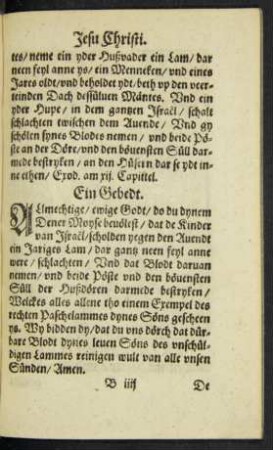 Jesu Christi.
tes/ neme ein yder Hußvader ein Lam/ dar
neen feyl anne ys/ ein Menneken/ vnd eines
Jares oldt/ vnd beholdet ydt/ beth vp den veer-
teinden Dach dessüluen Mántes. Vnd ein
yder Hupe/ in dem gantzen Israël/ schalt
schlachten twischen dem Auende/ Vnd gy
schólen synes Blodes nemen/ vnd beide Pó-
ste an der Dóre/ vnd den bóuensten Süll dar-
mede bestryken/ an den Hüsern dar se ydt in-
ne ethen/ Exod. am xij. Capittel.
Ein Gebedt.
ALlmechtige/ ewige Godt/ do du dynem
Dener Moyse beuólest/ dat de Kinder
van Israël/ scholden yegen den Auendt
ein Jariges Lam/ dar gantz neen feyl anne
were/ schlachten/ Vnd dat Blodt daruan
nemen/ vnd beide Póste vnd den bóuensten
Süll der Hußdóren darmede bestryken/
Welckes alles allene tho einem Exempel des
rechten Paschelammes dynes Sóns gescheen
ys. Wy bidden dy/ dat du vns dórch dat dür-
bare Blodt dynes leuen Sóns des vnschül-
digen Lammes reinigen wult van alle vnsen
Sünden/ Amen.
B iiij
De